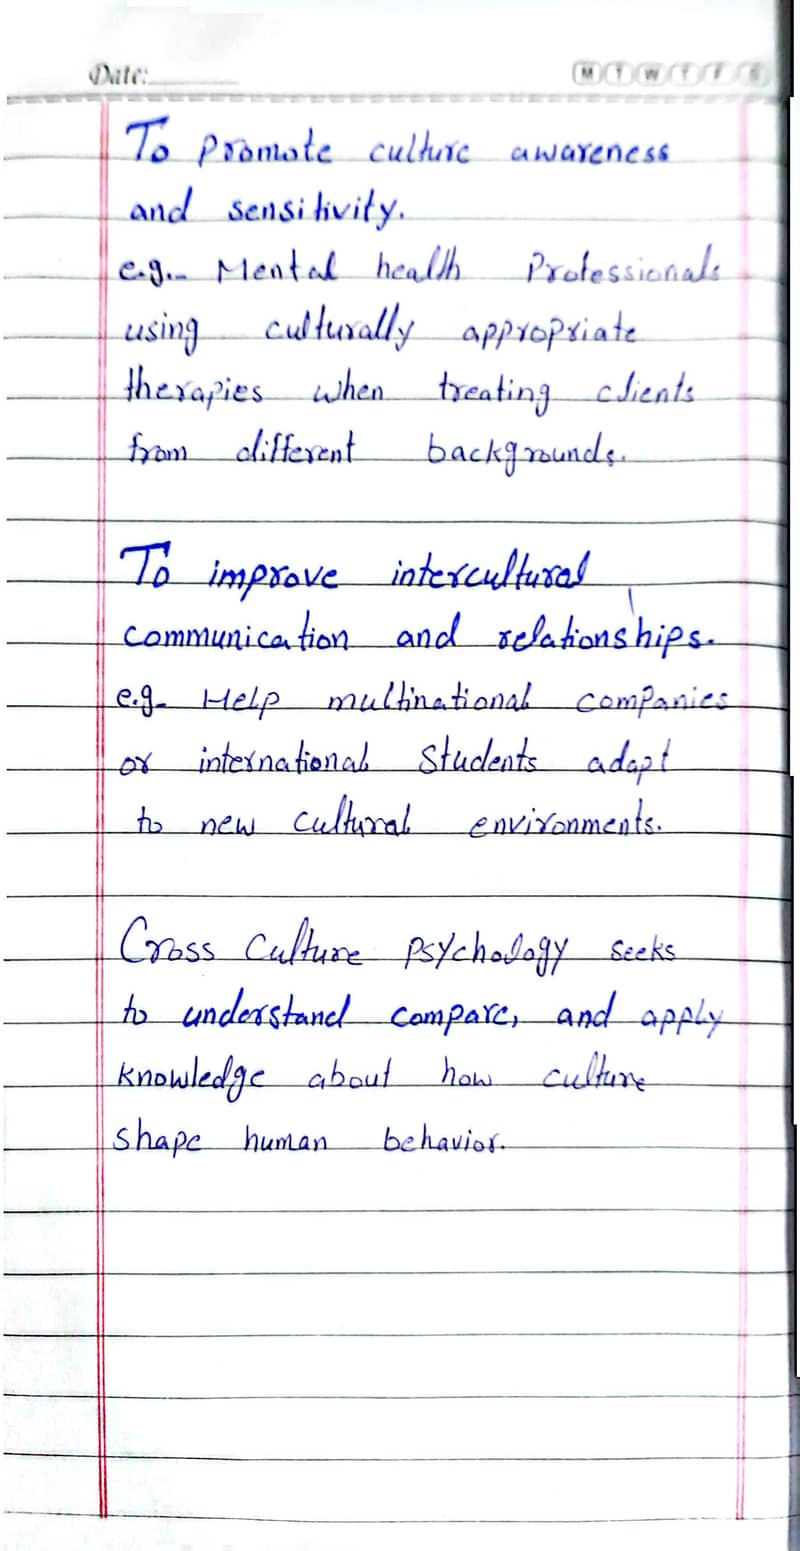 Date:
M T W T F S
To promote culture awareness
and sensitivity.
e.g.. Mental health Professionals
using culturally appropriate
therapies when treating clients
from different backgrounds.
To improve intercultural
communication and relationships.
e.g. Help multinational companies
or international students adapt
to new cultural environments.
Cross Culture Psychology seeks
to understand compare, and apply
knowledge about how culture
shape human behavior.